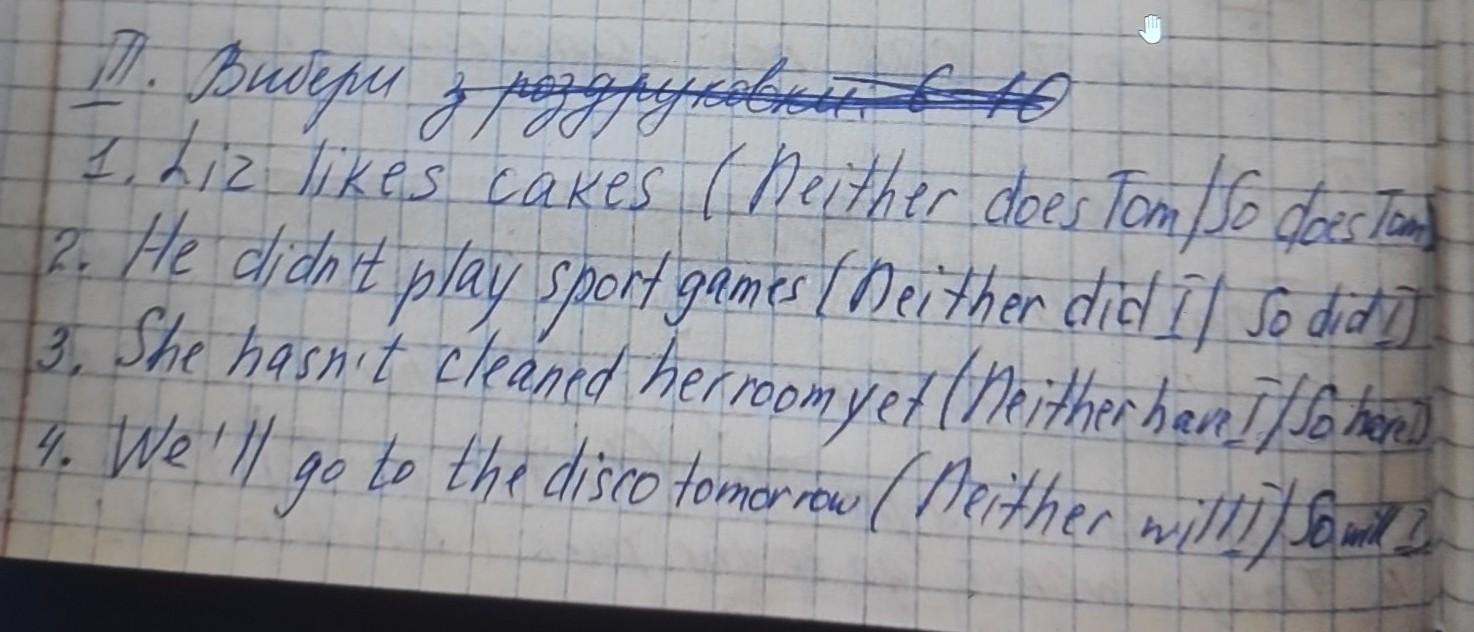 III. Вибери з роздруковки. 6-10
1. Liz likes cakes (Neither does Tom/So does Tom)
2. He didn't play sport games (Neither did I/ So did I)
3. She hasn't cleaned her room yet (Neither have I/So have I)
4. We'll go to the disco tomorrow (Neither will I/ So will I